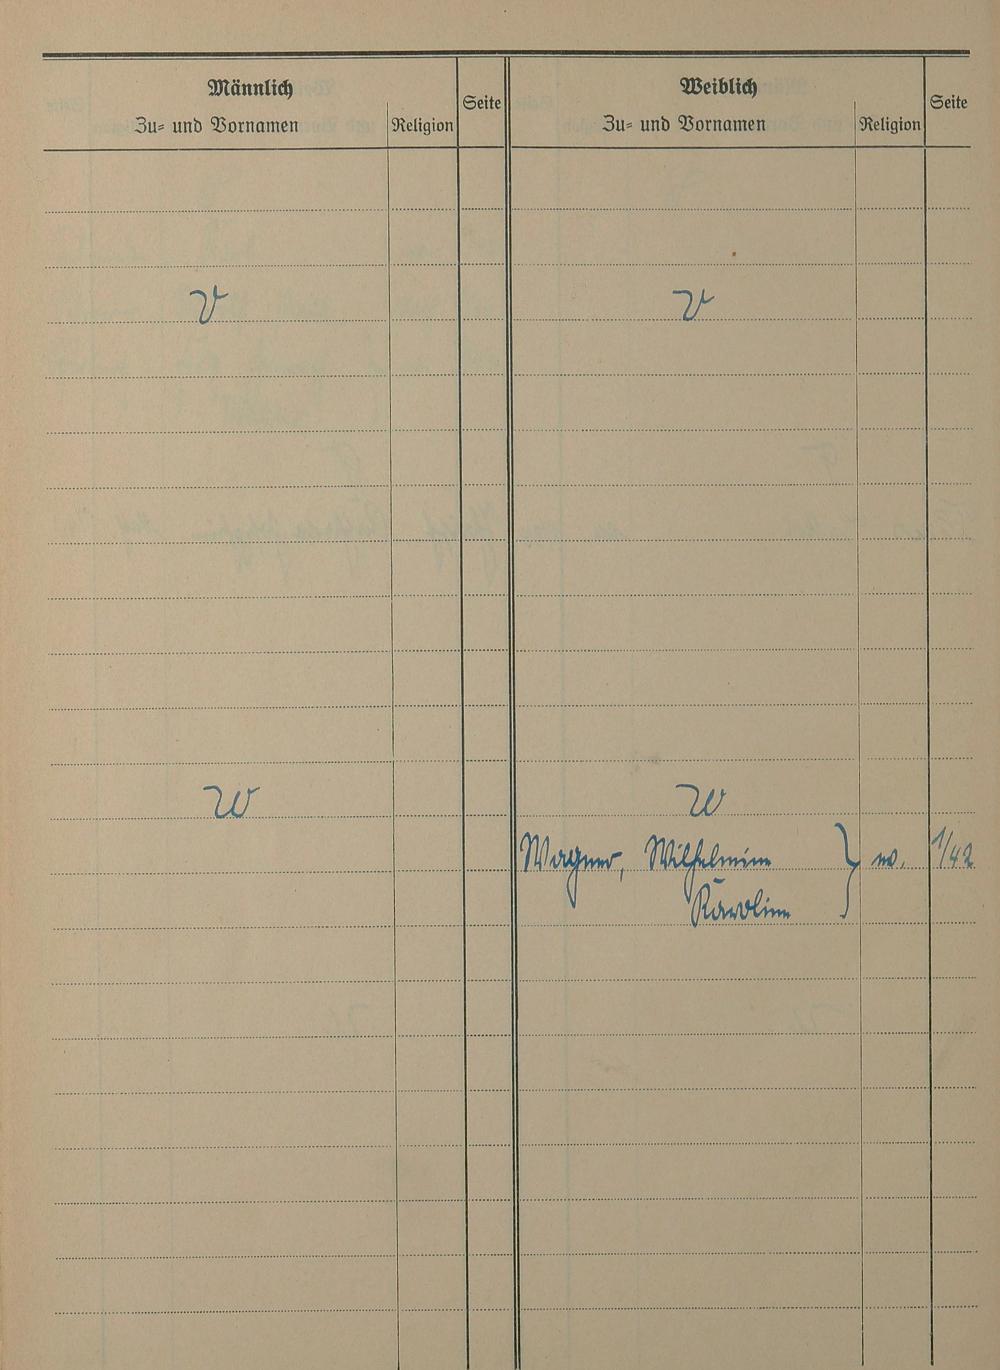 Männlich
Zu- und Vornamen
Religion
Seite
Weiblich
Zu- und Vornamen
Religion
Seite
V
V
W
W
Wagner, Wilhelmine } ev. 1/42
Karoline